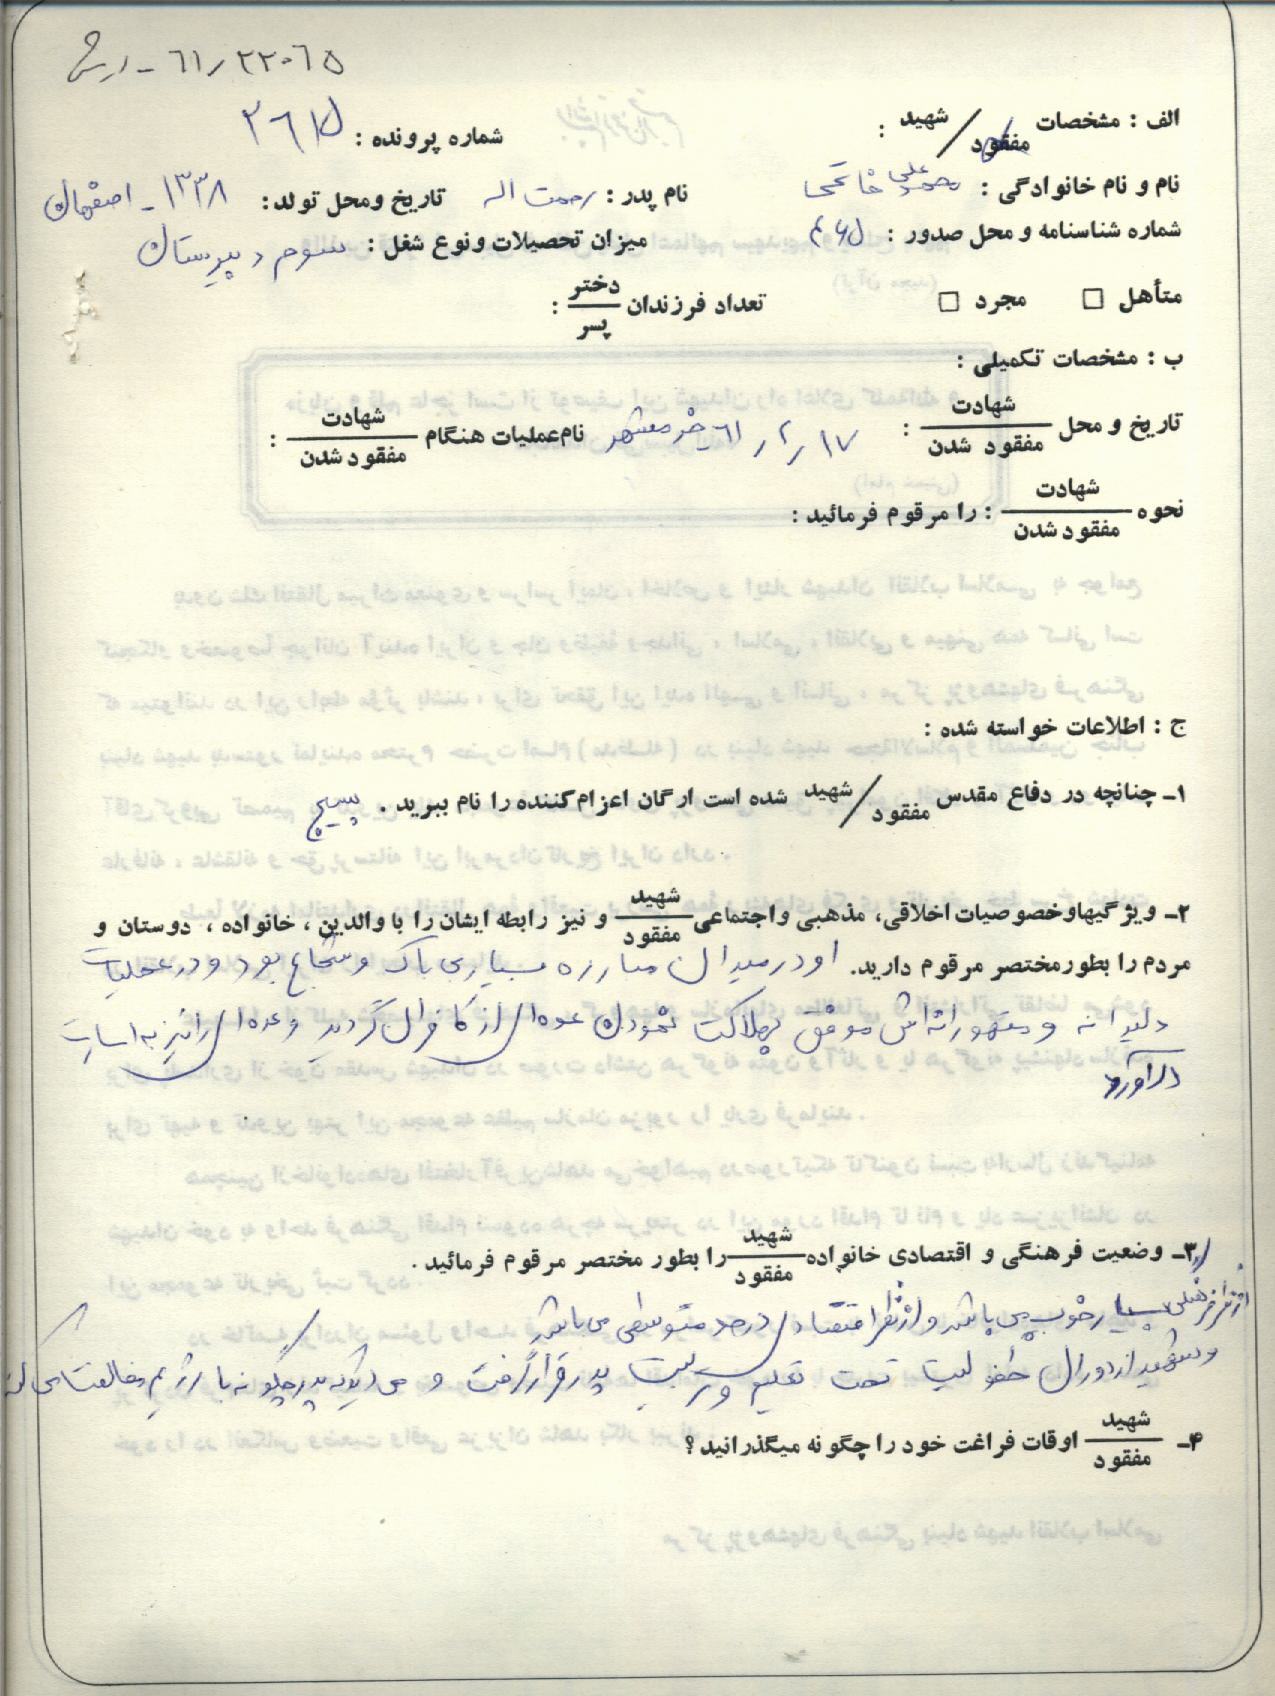 ۶۱/۲۲۰۶۵ -
الف : مشخصات شهید / مفقود :
شماره پرونده : ۲۶۱۵
نام و نام خانوادگی : محمد علی
نام پدر : رحمت اله
تاریخ ومحل تولد : ۱۳۳۸ - اصفهان
شماره شناسنامه و محل صدور : ۴۶۵
میزان تحصیلات ونوع شغل : سوم دبیرستان
متأهل □ مجرد □ تعداد فرزندان دختر / پسر :
ب : مشخصات تکمیلی :
تاریخ و محل شهادت / مفقود شدن : ۶۱/۲/۱۷ خرمشهر نام عملیات هنگام شهادت / مفقود شدن :
نحوه شهادت / مفقود شدن : را مرقوم فرمائید :
ج : اطلاعات خواسته شده :
۱- چنانچه در دفاع مقدس شهید / مفقود شده است ارگان اعزام کننده را نام ببرید . بسیج
۲- ویژگیهاوخصوصیات اخلاقی، مذهبی واجتماعی شهید / مفقود و نیز رابطه ایشان را با والدین ، خانواده ، دوستان و
مردم را بطور مختصر مرقوم دارید. او در میدان مبارزه بسیار بی باک و شجاع بود و در عملیات
دلیرانه و متهورانه اش موفق بهلاکت نمودن عده ای از کافران گردید و عده ای را نیز به اسارت
درآورد
۳- وضعیت فرهنگی و اقتصادی خانواده شهید / مفقود را بطور مختصر مرقوم فرمائید .
از نظر فرهنگی بسیار خوب می باشد و از نظر اقتصادی در حد متوسطی می باشد
و شهید از دوران طفولیت تحت تعلیم و تربیت پدر قرار گرفت و می دید که پدر چگونه با رژیم مخالفت می کند
۴- شهید / مفقود اوقات فراغت خود را چگونه میگذرانید ؟